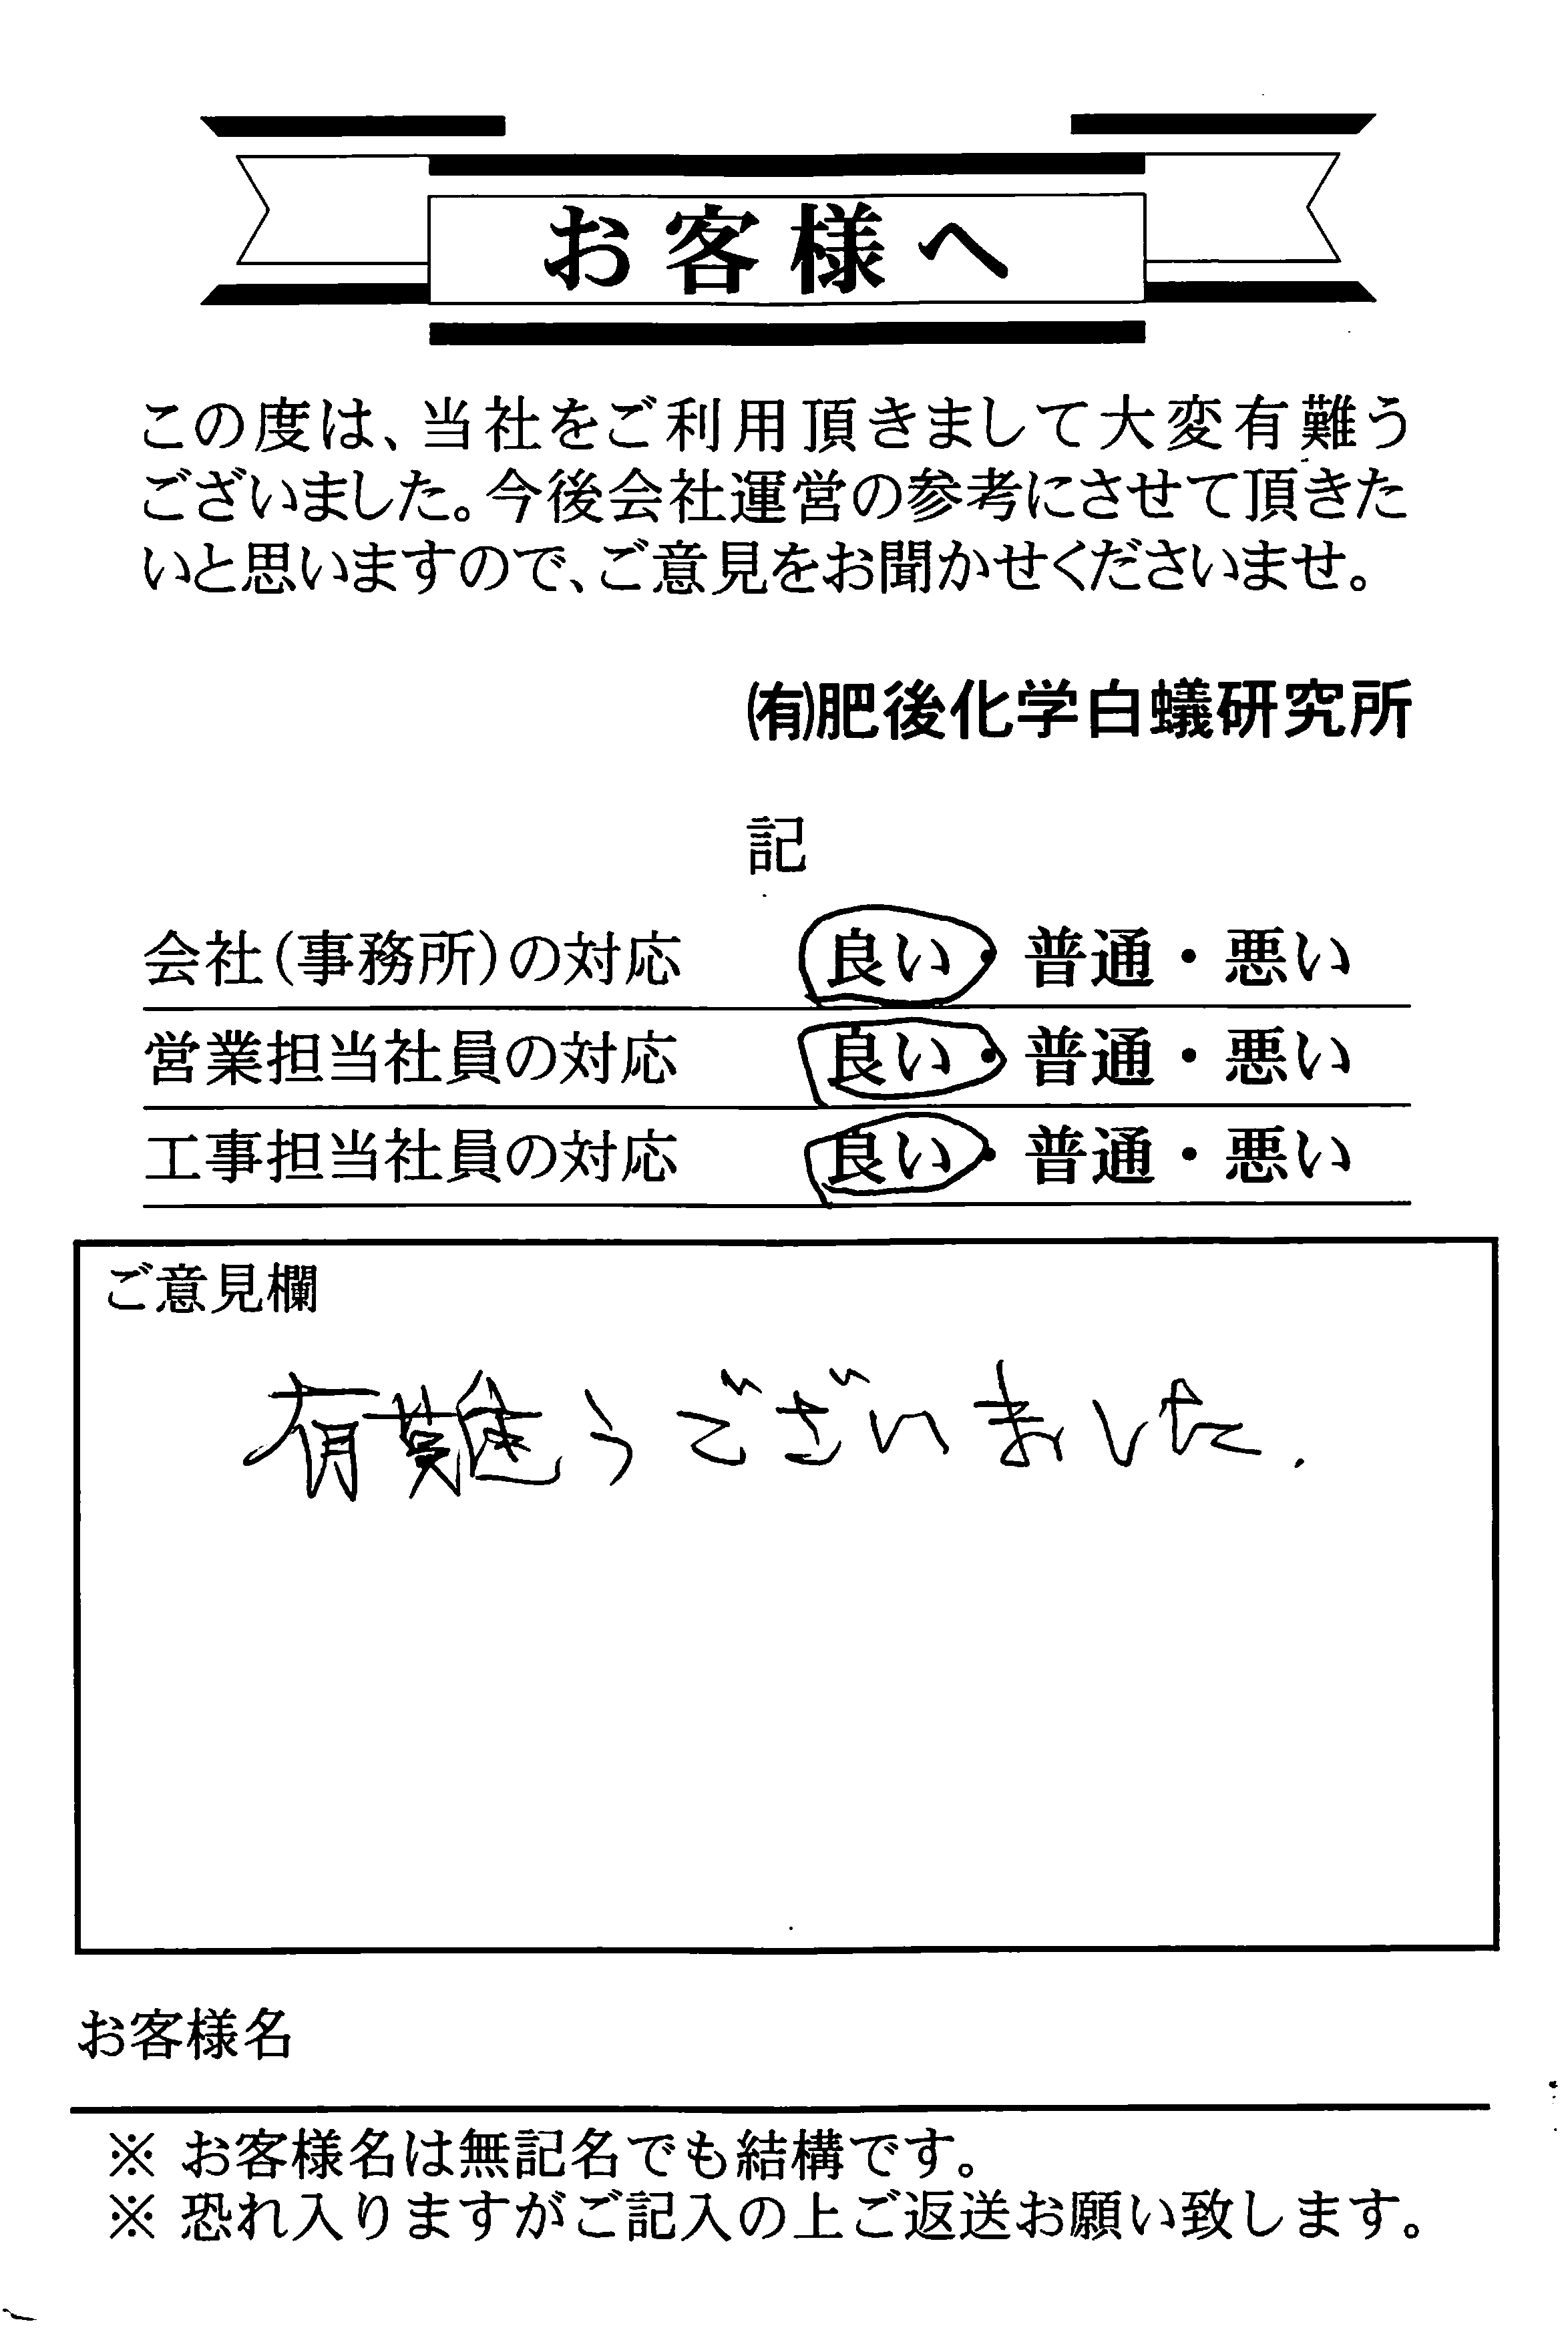 お客様へ
この度は、当社をご利用頂きまして大変有難う
ございました。今後会社運営の参考にさせて頂きた
いと思いますので、ご意見をお聞かせくださいませ。
㈲肥後化学白蟻研究所
記
会社(事務所)の対応 良い・普通・悪い
営業担当社員の対応 良い・普通・悪い
工事担当社員の対応 良い・普通・悪い
ご意見欄
有難うございました.
お客様名
※ お客様名は無記名でも結構です。
※ 恐れ入りますがご記入の上ご返送お願い致します。